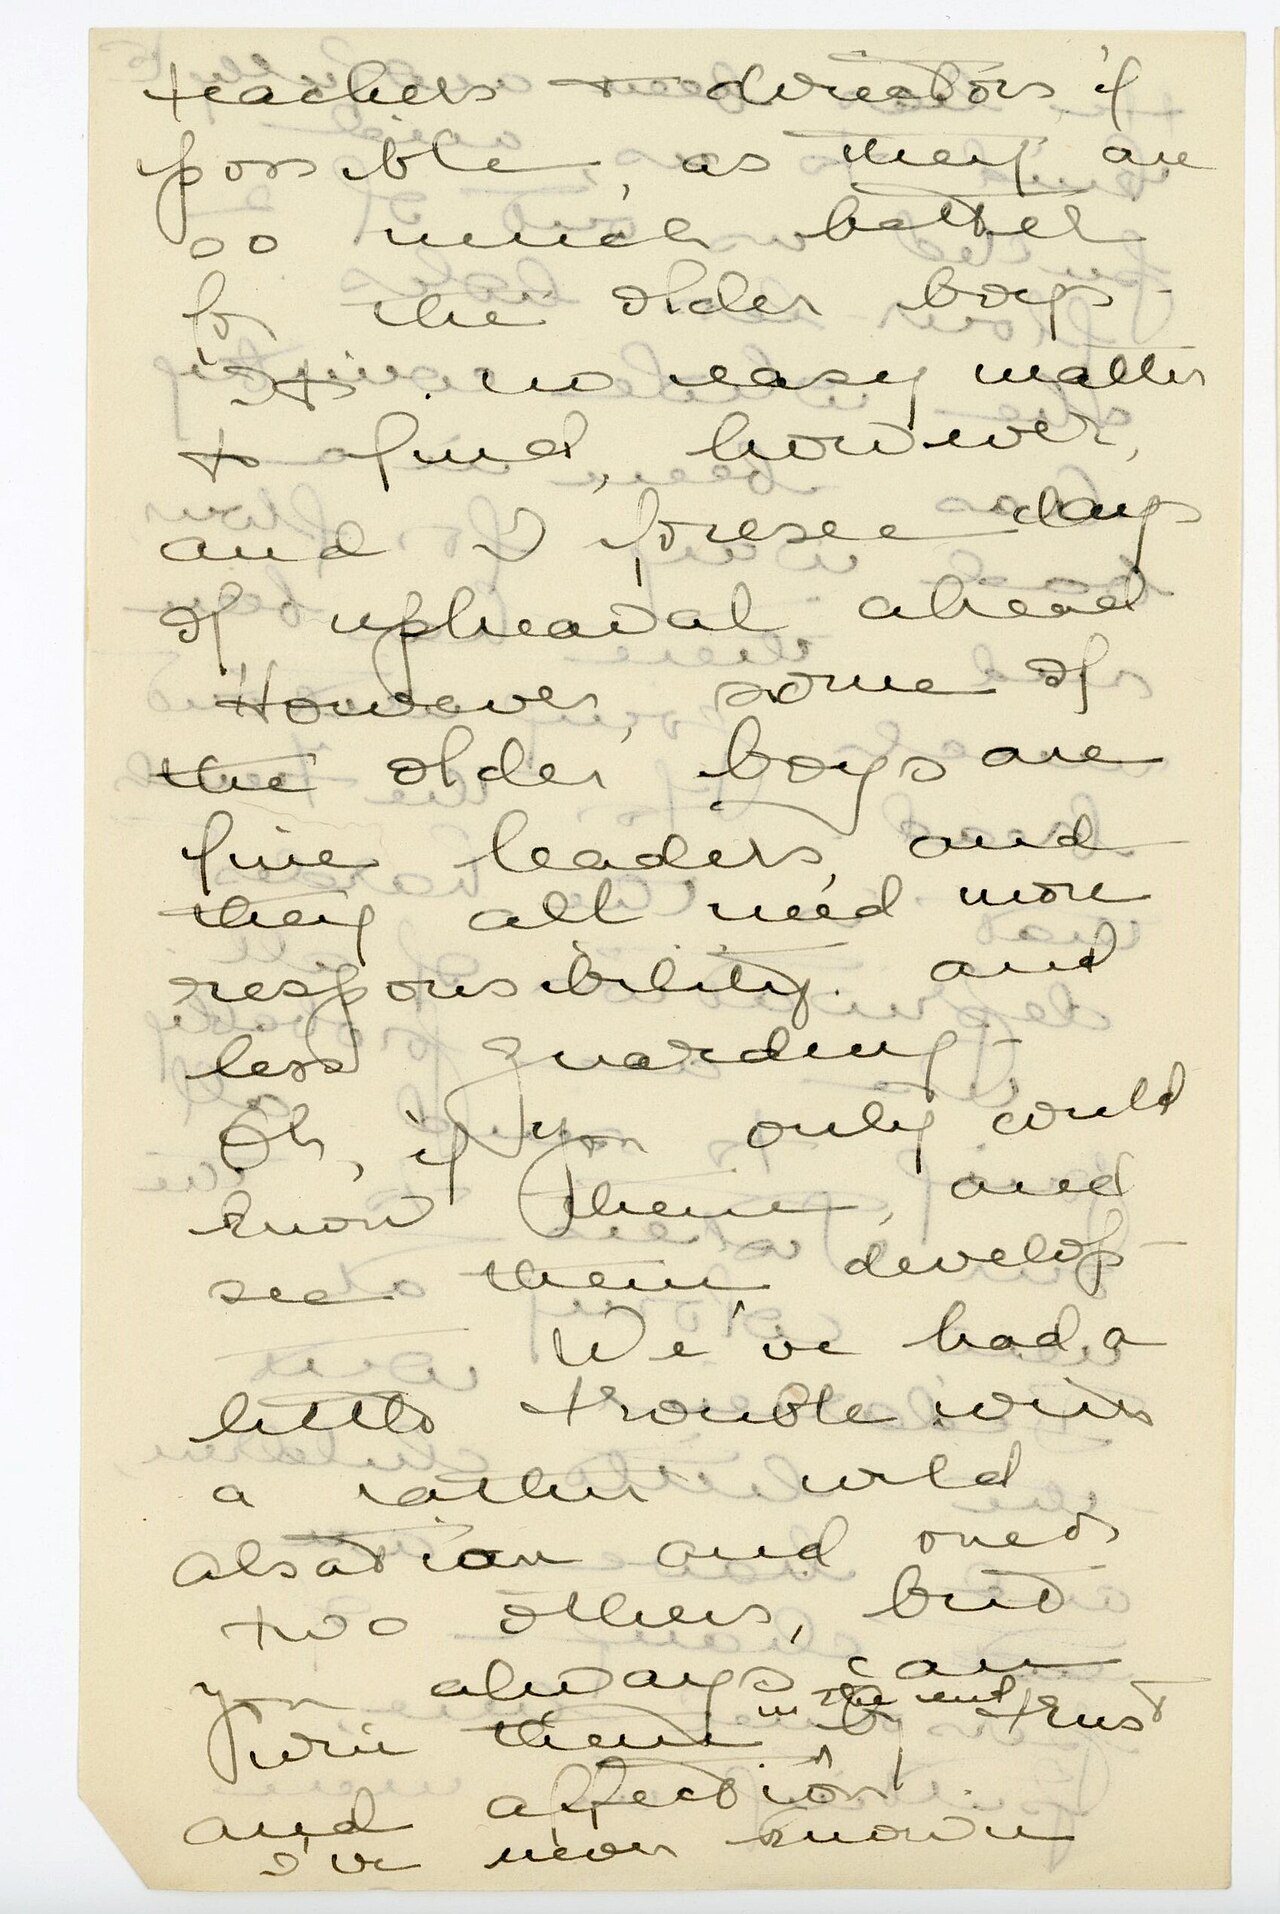 teachers + directors if
possible, as they are
so much better
for the older boys -
It's no easy matter
to find, however,
and I foresee days
of upheaval ahead
However, some of
the older boys are
fine leaders, and
they all need more
responsibility and
less guarding -
Oh, if you only could
know them, and
see them develop -
We've had a
little trouble with
a rather wild
alsatian and one or
two others, but
you always can
win them in the end by trust
and affection.
I've never known